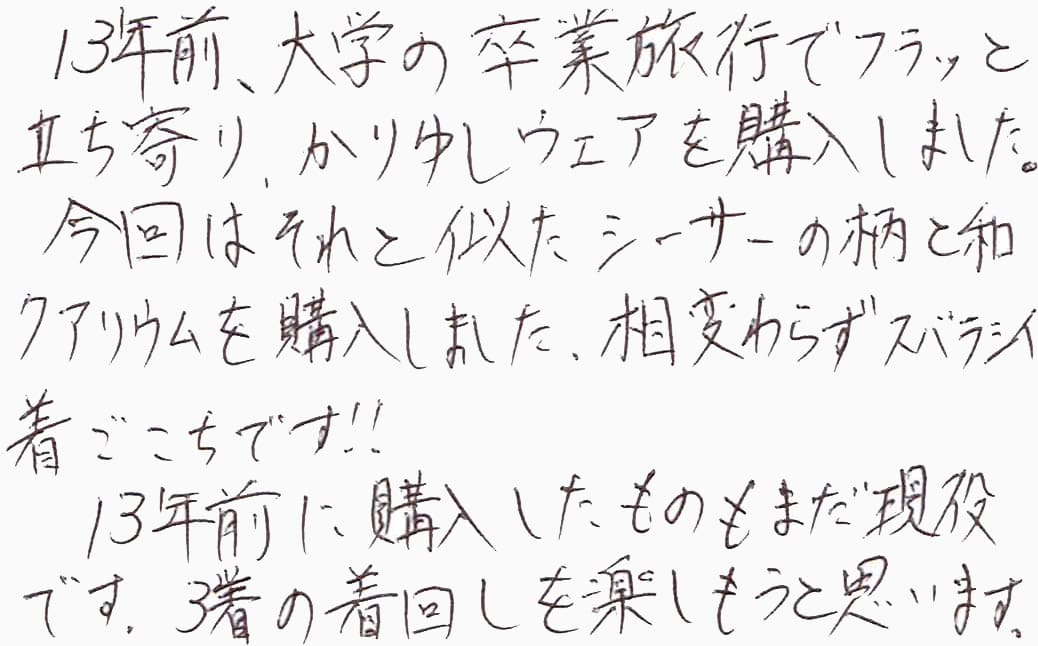 13年前、大学の卒業旅行でフラッと
立ち寄り、かりゆしウェアを購入しました。
今回はそれと似たシーサーの柄と和
クアリウムを購入しました、相変わらずスバラシイ
着ごこちです!!
13年前に購入したものもまだ現役
です。3着の着回しを楽しもうと思います。